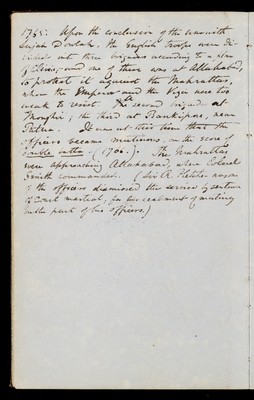 1765: Upon the conclusion of the war with
Sujah Dowlah, the English troops were di-
vided out three brigades according to a plan
of Clives, and one of these was at Allahabad,
to protect it against the Mahrattas,
whom the Emperor and the Vizier were too
weak to resist. The second brigade at
Monghir; the third at Bankipore, near
Patna. It was at this time that the
officers became mutinous, on the score of
double batta (1766.). The Mahrattas
were approaching Allahabad, when Colonel
Smith commanded. (Sir R. Fletcher
of the officers dismissed the service by sentence
of Court martial, for his of mutiny
on the part of his officers.)